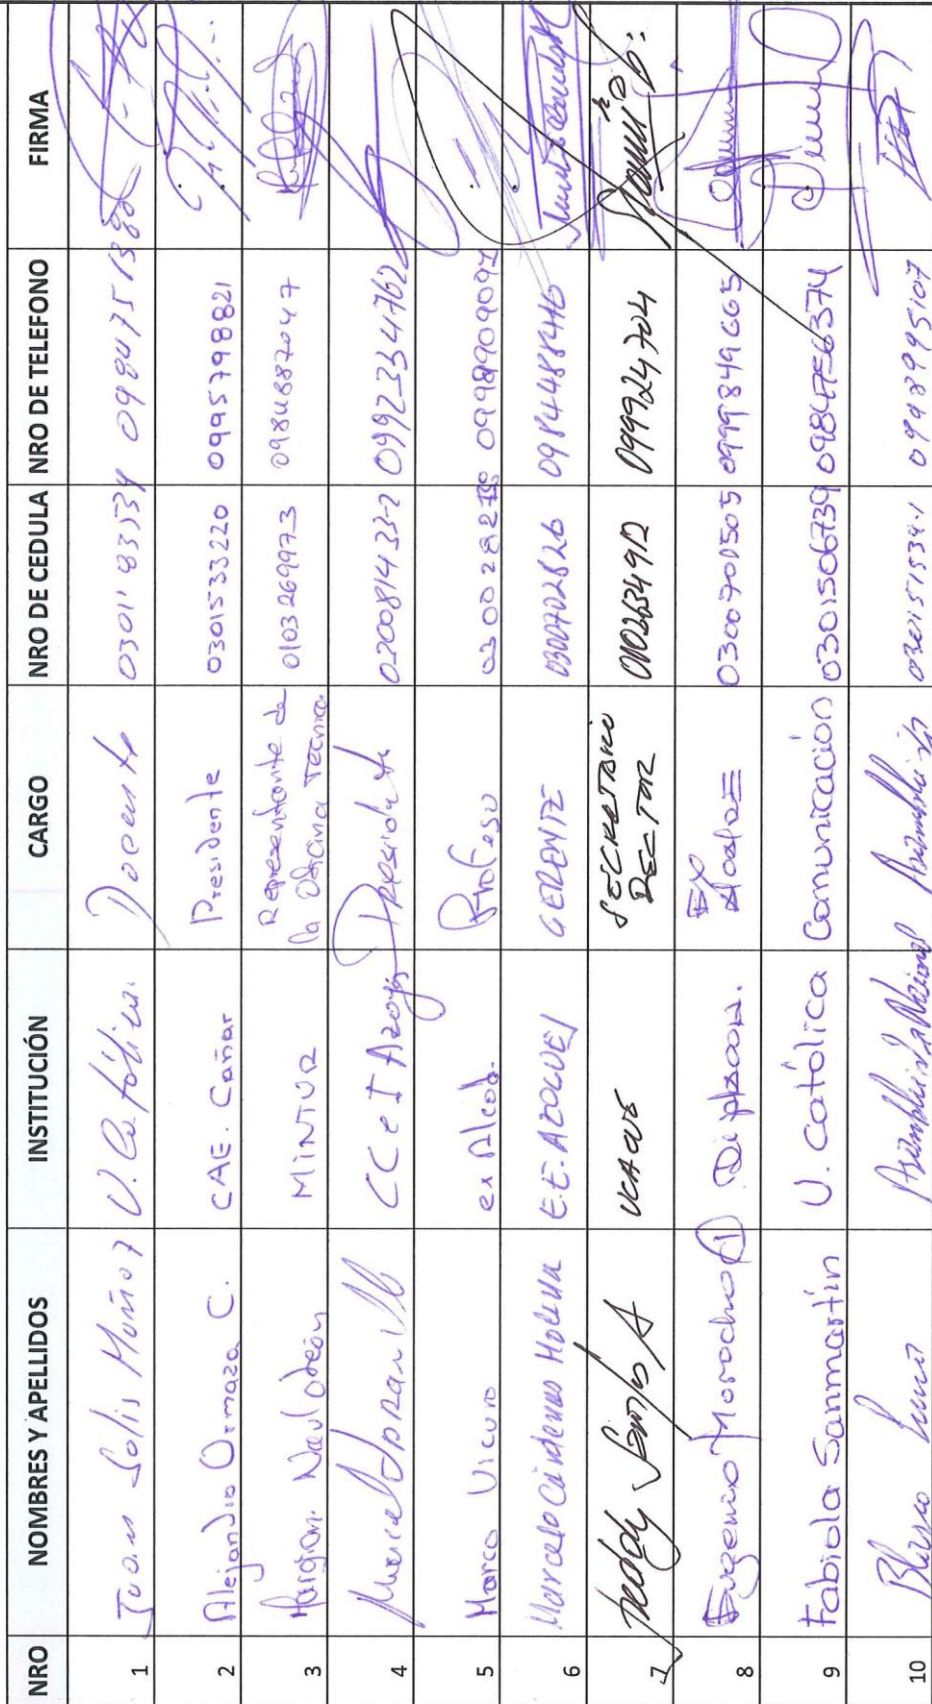 NRO NOMBRES Y APELLIDOS INSTITUCIÓN CARGO NRO DE CEDULA NRO DE TELEFONO FIRMA
1 Juan Solis Muñoz U. Católica. Docente
2 Alejandro Ormaza C. CAE. Cañar Presidente 0301533220 0995798821
3 MINTUR Representante de la Oficina Tecnica 0103269973 0984887047
4 CCeI Azogues Presidente 020081433-2 0992334762
5 Marco Vicuña ex Alcald. Profeso 0998909097
6 Marcelo Cárdenas Molina E.E. AZOGUEZ GERENTE 0300702826 0984488446
7 Freddy UCACUE SECRETARIO RECTOR 0102634912 0999247204
8 Eugenio Morocho Q Ex Alcalde 0300700505 0999849665
9 Fabiola Sanmartín U. Católica Comunicación 0301506739 0984756374
10 Blasco Luna Asamblea Nacional Asambleísta 030151534-1 0992995107